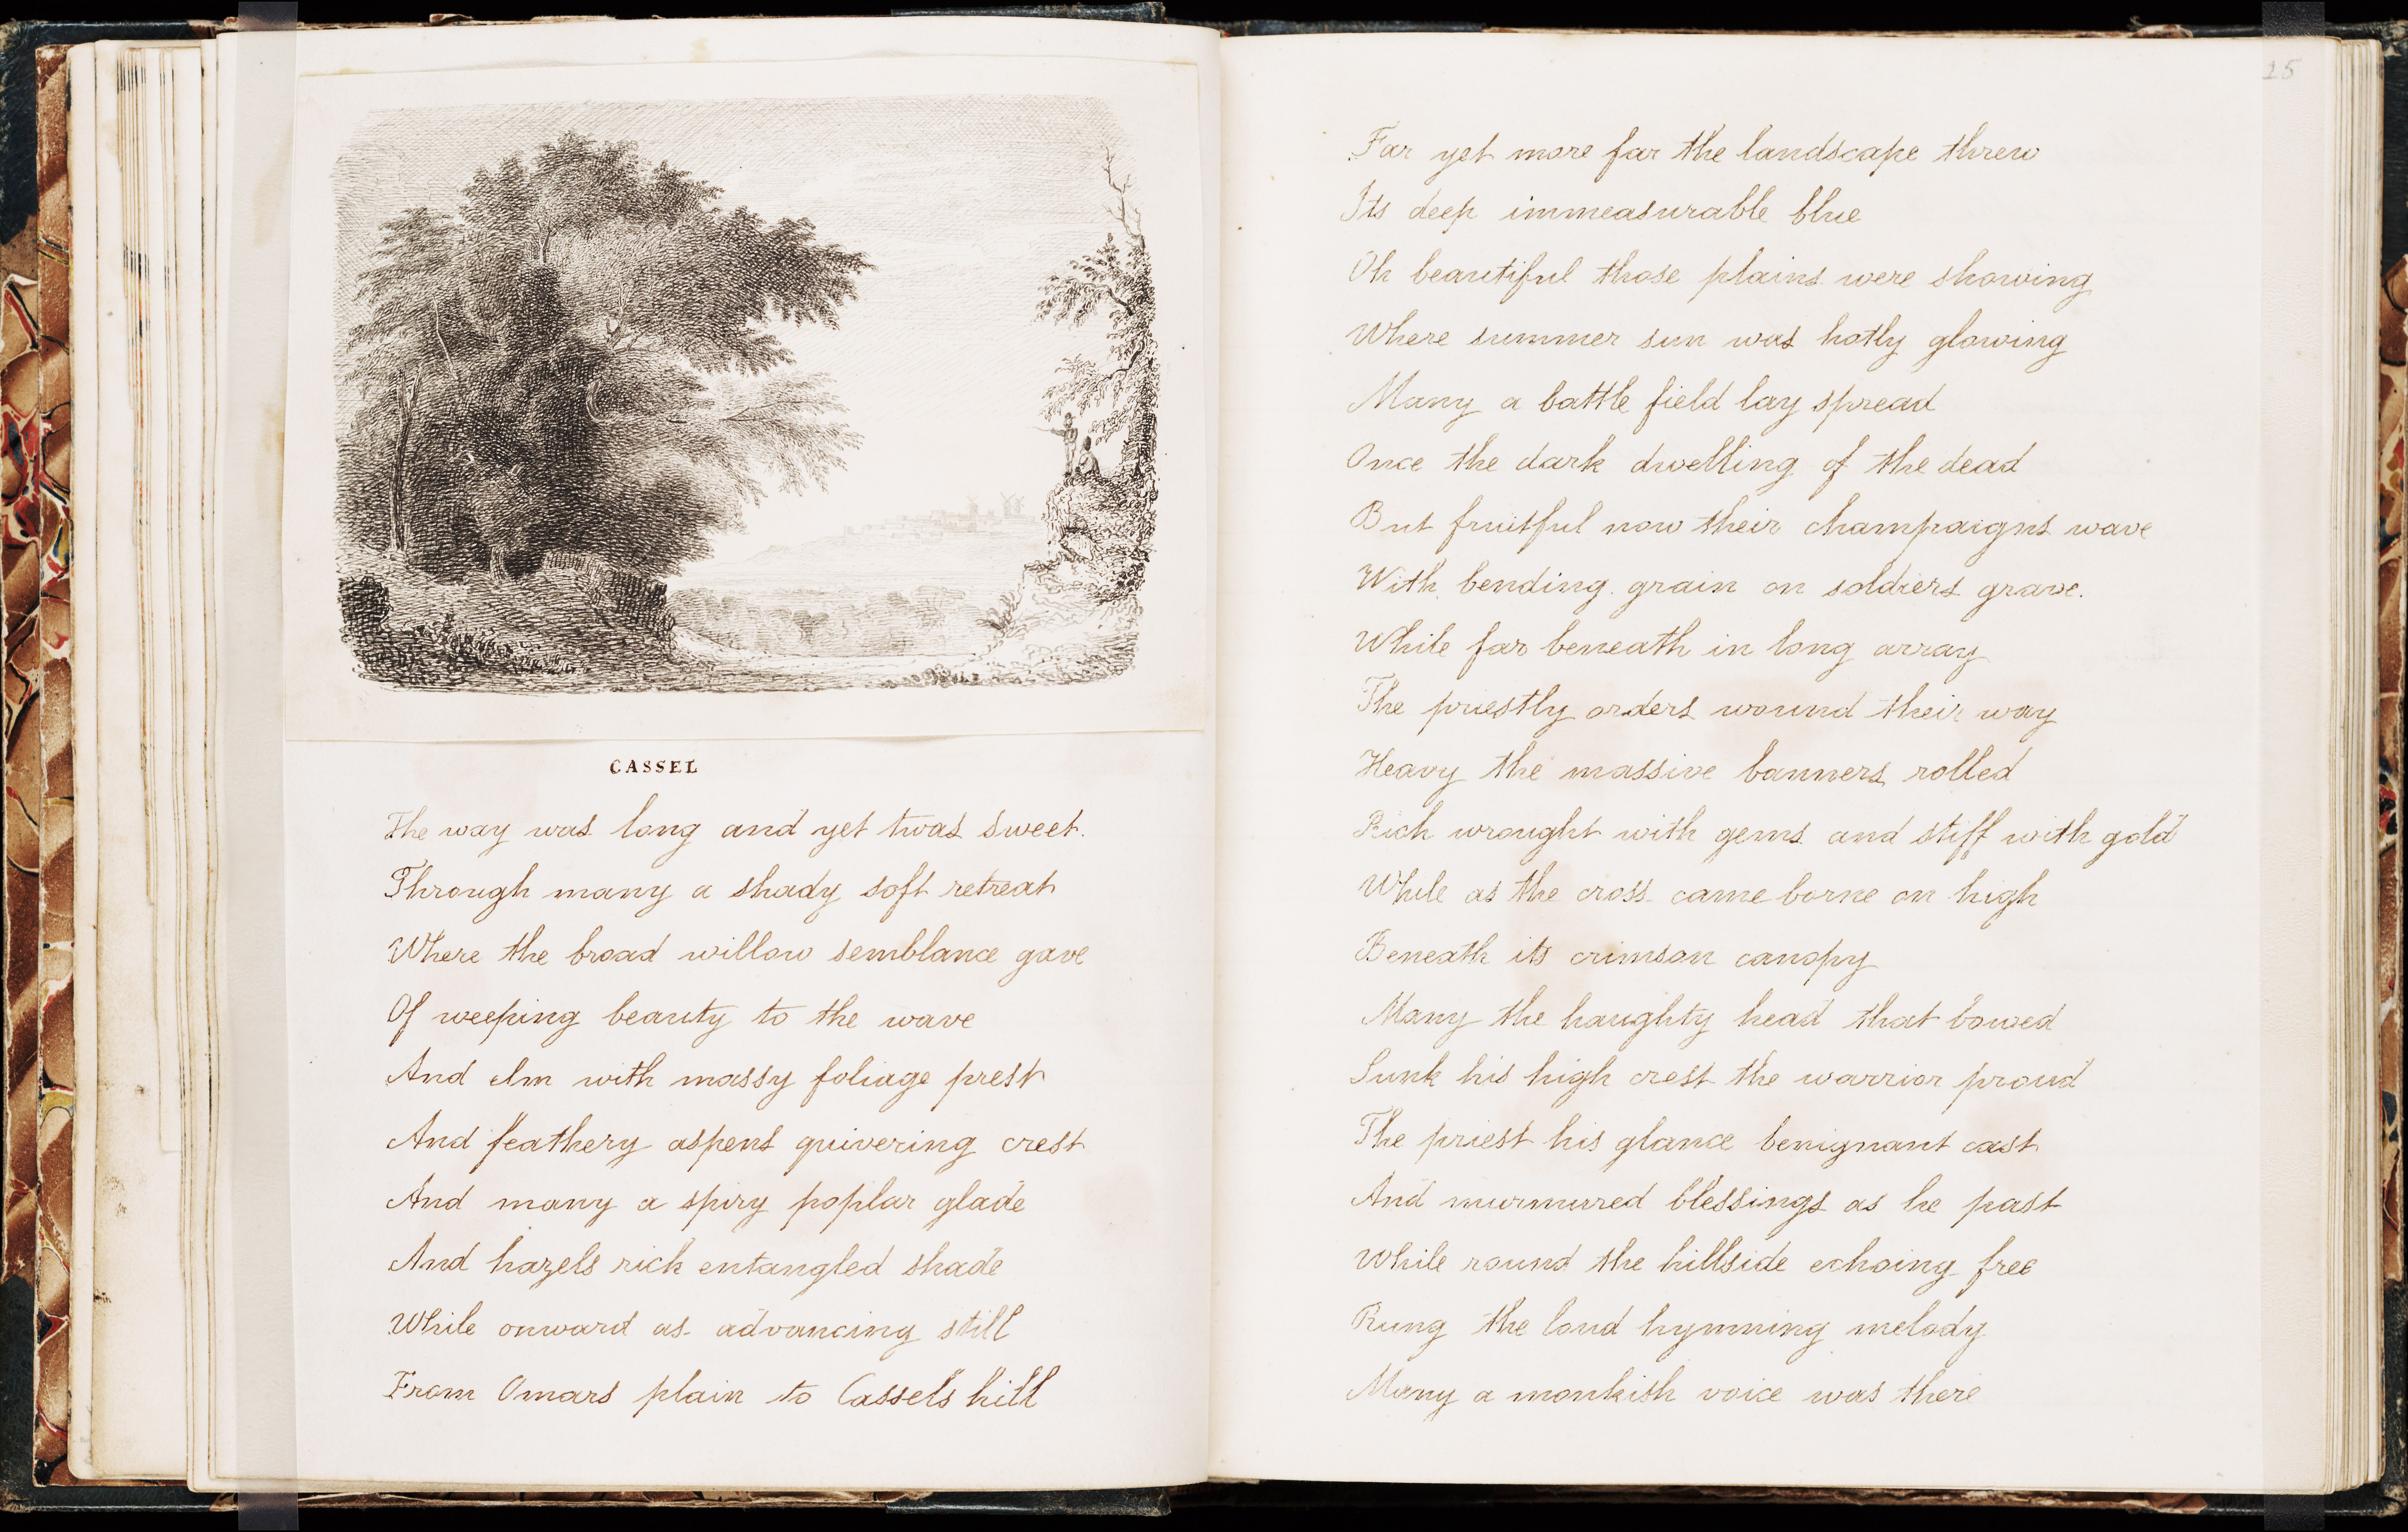 CASSEL
The way was long and yet twas sweet.
Through many a shady soft retreat
Where the broad willow semblance gave
Of weeping beauty to the wave
And elm with massy foliage prest
And feathery aspens quivering crest
And many a spiry poplar glade
And hazels rich entangled shade
While onward as advancing still
From Omars plain to Cassels hill
15
Far yet more far the landscape threw
Its deep immeasurable blue
Oh beautiful those plains were showing
Where summer sun was hotly glowing
Many a battle field lay spread
Once the dark dwelling of the dead
But fruitful now their champaigns wave
With bending grain on soldiers grave.
While far beneath in long array
The priestly orders wound their way
Heavy the massive banners rolled
Rich wrought with gems and stiff with gold
While as the cross came borne on high
Beneath its crimson canopy
Many the haughty head that bowed
Sunk his high crest the warrior proud
The priest his glance benignant cast
And murmured blessings as he past
While round the hillside echoing free
Rung the loud hymning melody
Many a monkish voice was there